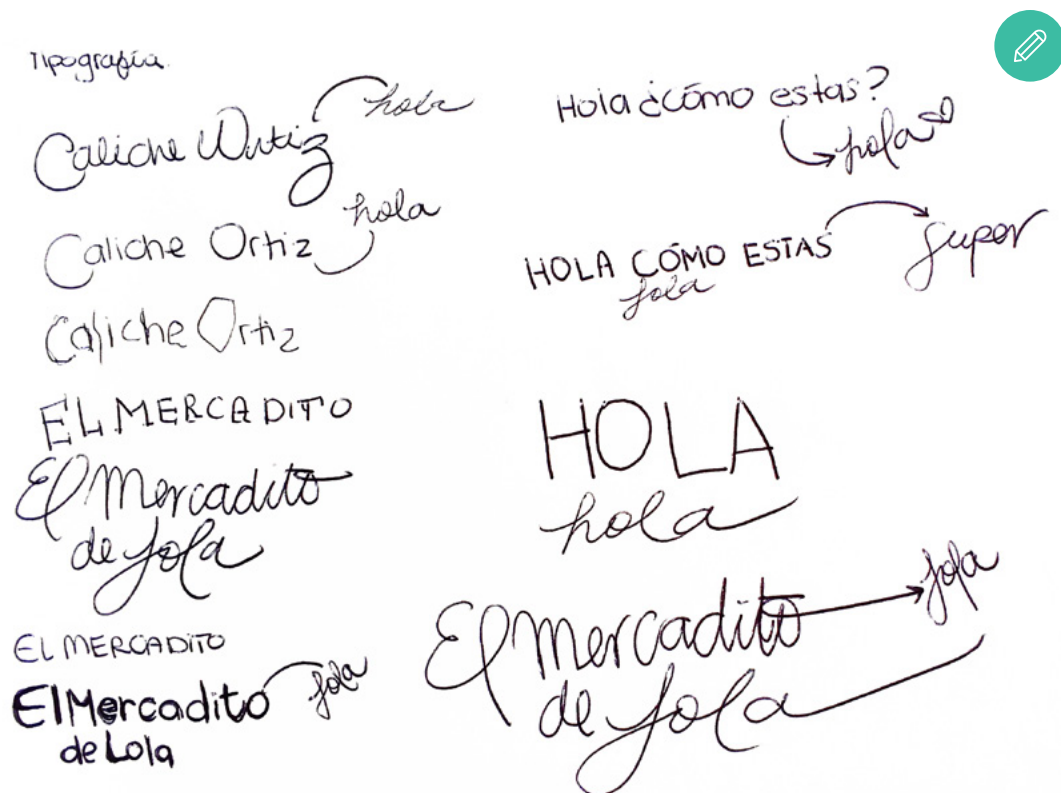 Tipografía
Caliche Ortiz hola
Caliche Ortiz hola
Caliche Ortiz
EL MERCADITO
El Mercadito
de Lola
EL MERCADITO
El Mercadito lola
de Lola
Hola ¿cómo estas?
hola
HOLA CÓMO ESTAS super
lola
HOLA
hola
El Mercadito lola
de Lola